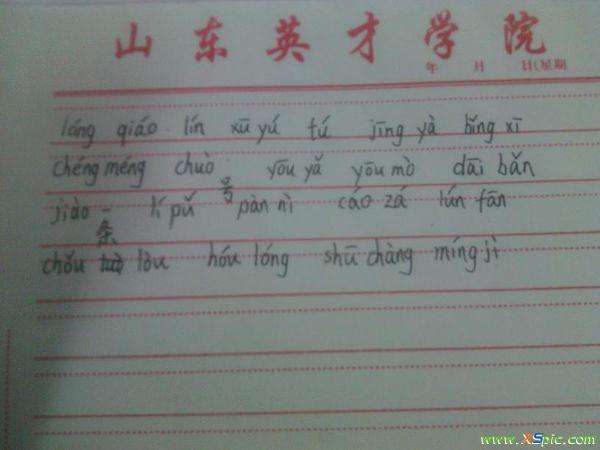 山东英才学院
年 月 日(星期
lóng qiáo lín xū yú tú jīng yà bīng xī
chéng méng chuò yōu yǎ yōu mò dāi bǎn
jiào tí pǔ pàn nì cáo zá lún fān
chǒu lòu hóu lóng shū chàng míng jì
www.XSpic.com